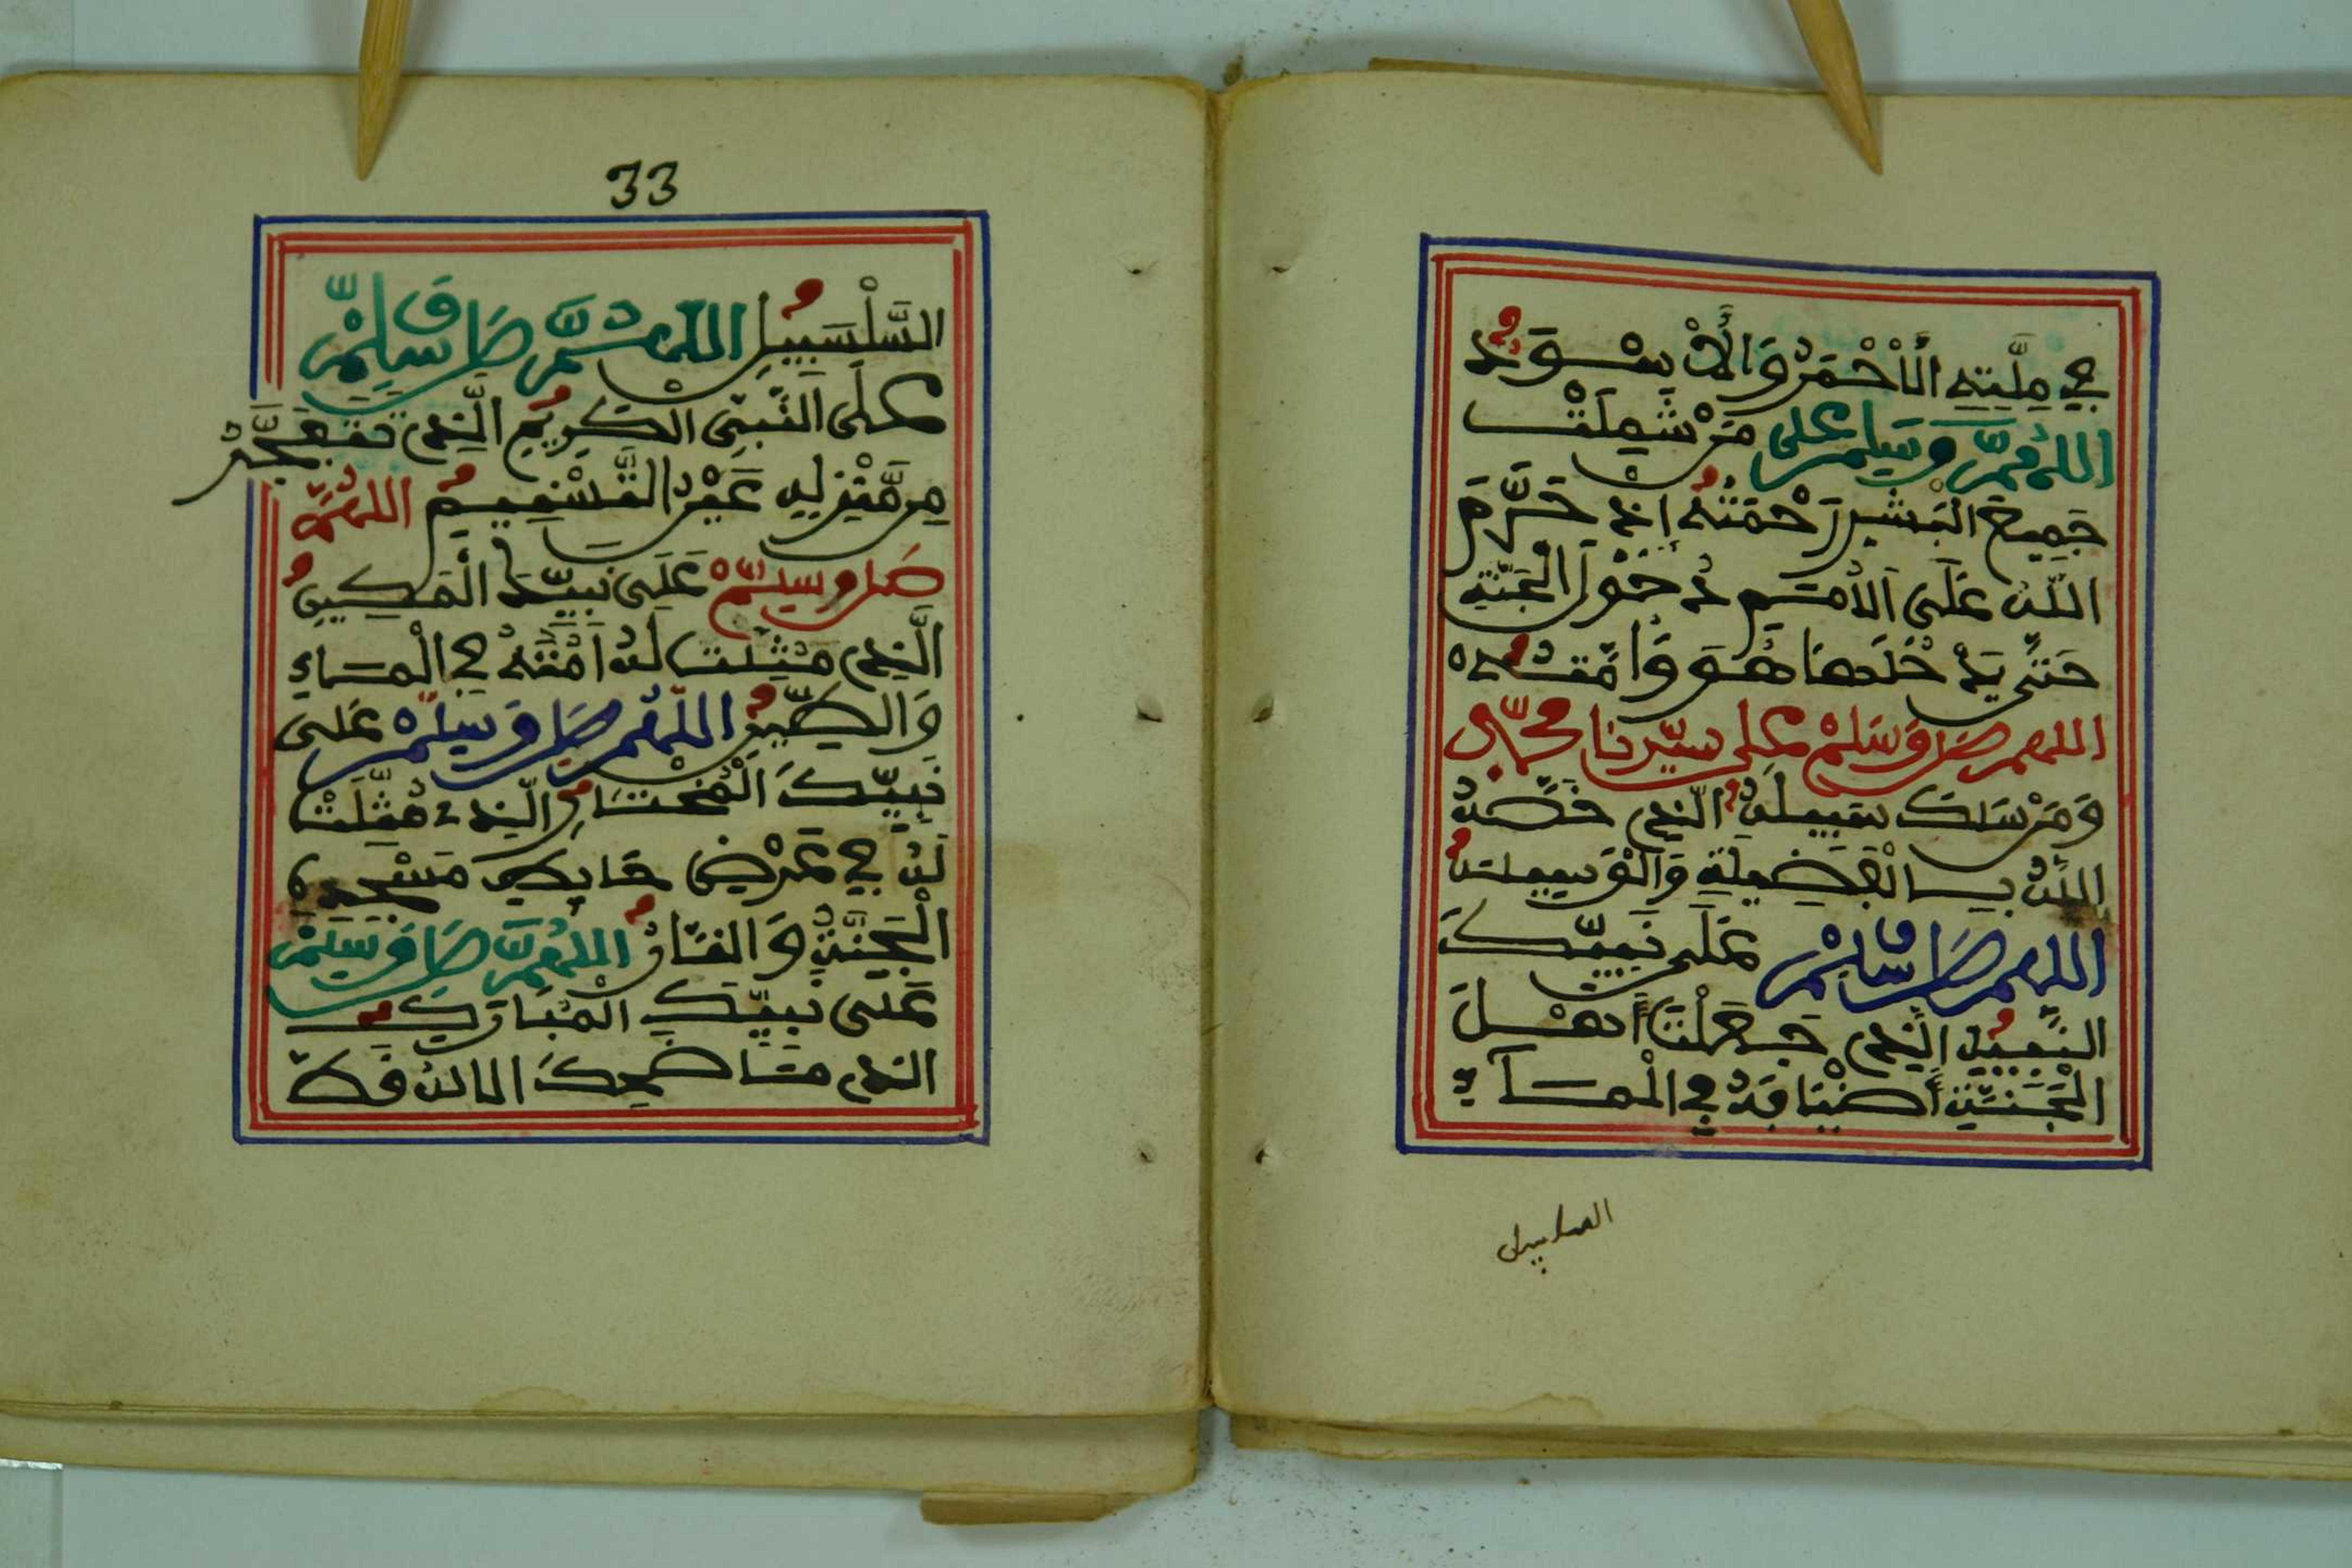 في ملته الأحمر والأسود
اللهم وسلم على من شملت
جميع البشر رحمته إذ حرم
الله على الأمم دخول الجنة
حتى يدخلها هو وأمته
اللهم صل وسلم على سيدنا محمد
ومن سلك سبيله الذي خصه
الله بالفضيلة والوسيلة
اللهم صل وسلم على نبيك
النبيل الذي جعلت أهل
الجنة أضيافه في المساء
السلسبيل
33
السلسبيل اللهم صل وسلم
على النبي الكريم الذي تتفجر
من منزله عين التسنيم اللهم
صل وسلم على نبيك المكين
الذي مثلت له أمته في الماء
والطين اللهم صل وسلم على
نبيك المختار الذي مثلت
له في عرض حايط مسجده
الجنة والنار اللهم صل وسلم
على نبيك المبارك
الذي ما ضحك